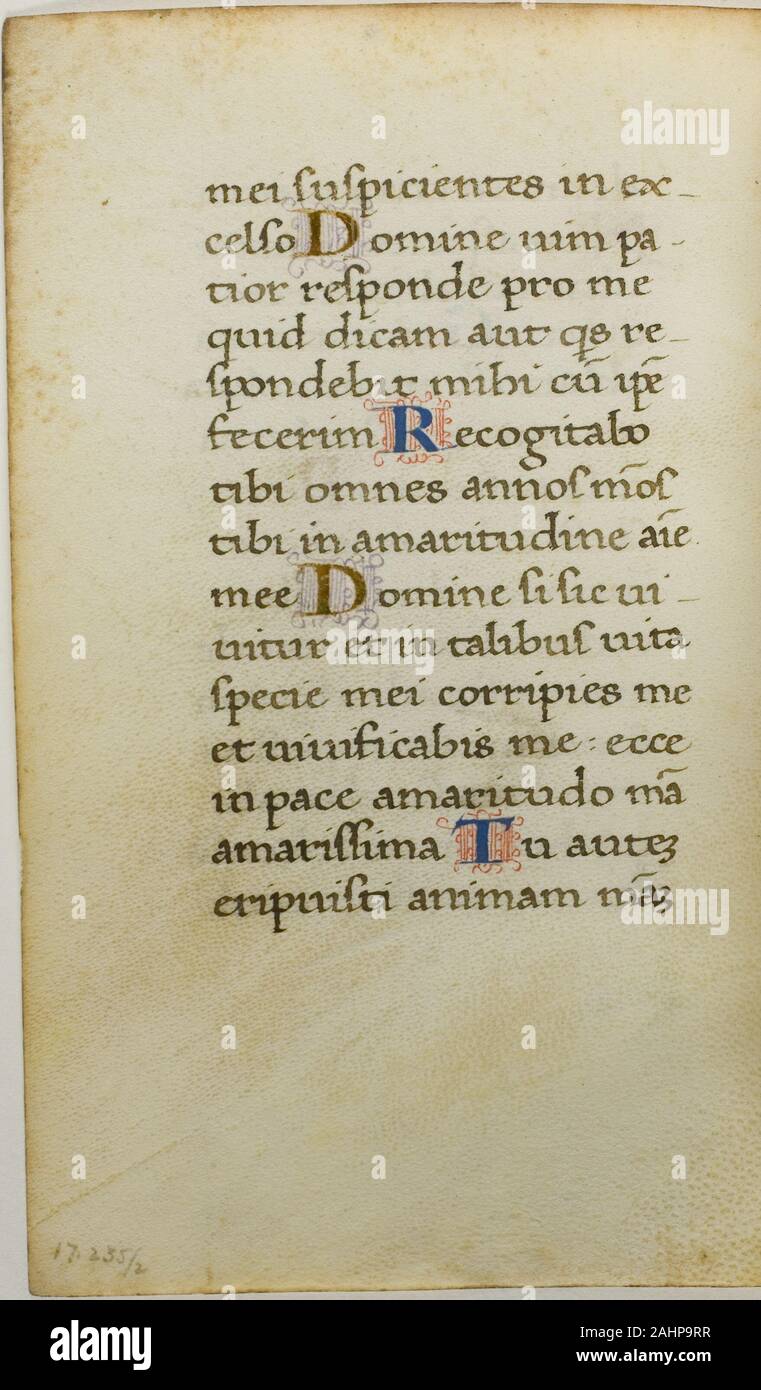 mei suspicientes in ex-
celso Domine uim pa-
tior responde pro me
quid dicam aut qs re-
spondebit mihi cū ipē
fecerim Recogitabo
tibi omnes annos mōs
tibi in amaritudine aīe
mee Domine si sic ui-
uitur et in talibus uita
specie mei corripies me
et uiuificabis me: ecce
in pace amaritudo mā
amarissima Tu auteꝫ
eripuisti animam māꝫ
17.235/2
alamy
Image ID: 2AHP9RR
www.alamy.com